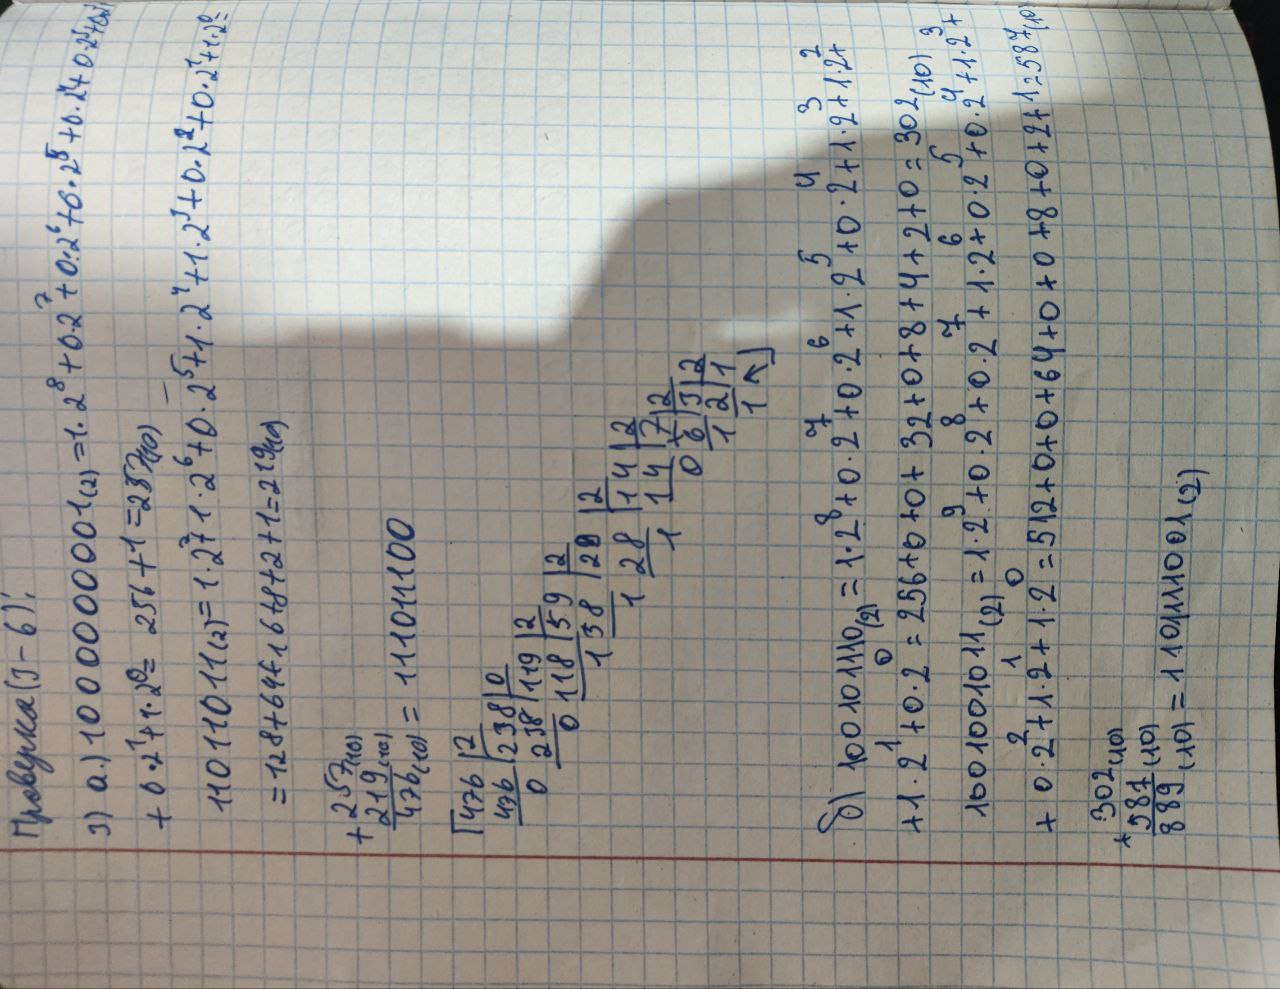 Проверка(3-6):
3) а) 100000001(2) = 1·2⁸+0·2⁷+0·2⁶+0·2⁵+0·2⁴+0·2³+0·2²
+0·2¹+1·2⁰= 256+1=257(10)
11011011(2)=1·2⁷+1·2⁶+0·2⁵+1·2⁴+1·2³+0·2²+0·2¹+1·2⁰=
=128+64+16+8+2+1=219(10)
+257(10)
219(10)
476(10) = 111011100
476|2
476|238|0
0 238|119|2
0 118|59|2
1 58|29|2
1 28|14|2
1 14|7|2
0 6|3|2
1 2|1
1
б) 100101110(2) = 1·2⁸+0·2⁷+0·2⁶+1·2⁵+0·2⁴+1·2³+1·2²+
+1·2¹+0·2⁰=256+0+0+32+0+8+4+2+0=302(10)
1001001011(2)=1·2⁹+0·2⁸+0·2⁷+1·2⁶+0·2⁵+0·2⁴+1·2³+
+0·2²+1·2¹+1·2⁰=512+0+0+64+0+0+8+0+2+1=587(10)
+302(10)
587(10)
889(10) = 1101111001(2)